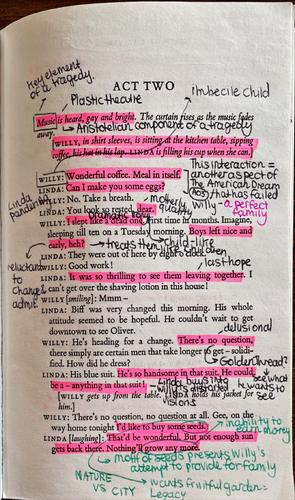 Key element
of a tragedy.
ACT TWO
Plastic theatre
imbecile child
Music is heard, gay and bright. The curtain rises as the music fades
away.
Aristotelian component of a tragedy
WILLY, in shirt sleeves, is sitting at the kitchen table, sipping
coffee, his hat in his lap. LINDA is filling his cup when she can.
WILLY: Wonderful coffee. Meal in itself.
LINDA: Can I make you some eggs?
WILLY: No. Take a breath.
LINDA: You look so rested, dear.
This interaction =
another aspect of
The American Dream
that has failed
Willy - a perfect
family
Linda
pandering
motherly
quality
Dramatic
WILLY: I slept like a dead one. First time in months. Imagine,
sleeping till ten on a Tuesday morning. Boys left nice and
early, heh?
treats them
child-like
LINDA: They were out of here by eight o'clock.
WILLY: Good work!
last hope
reluctant
to
change/
admit
LINDA: It was so thrilling to see them leaving together. I
can't get over the shaving lotion in this house!
WILLY [smiling]: Mmm –
LINDA: Biff was very changed this morning. His whole
attitude seemed to be hopeful. He couldn't wait to get
downtown to see Oliver.
delusional
WILLY: He's heading for a change. There's no question,
there simply are certain men that take longer to get – solidi-
fied. How did he dress?
Golden Thread?
LINDA: His blue suit. He's so handsome in that suit. He could
be a – anything in that suit!
Linda buys into
willy's distorted
visions
see what
he wants to
see
[WILLY gets up from the table. LINDA holds his jacket for
him.]
WILLY: There's no question, no question at all. Gee, on the
way home tonight I'd like to buy some seeds.
inability to
earn money
LINDA [laughing]: That'd be wonderful. But not enough sun
gets back there. Nothing'll grow any more.
motif of seeds presents Willy's
attempt to provide for family
NATURE
VS CITY
wants fruitful garden-
Legacy